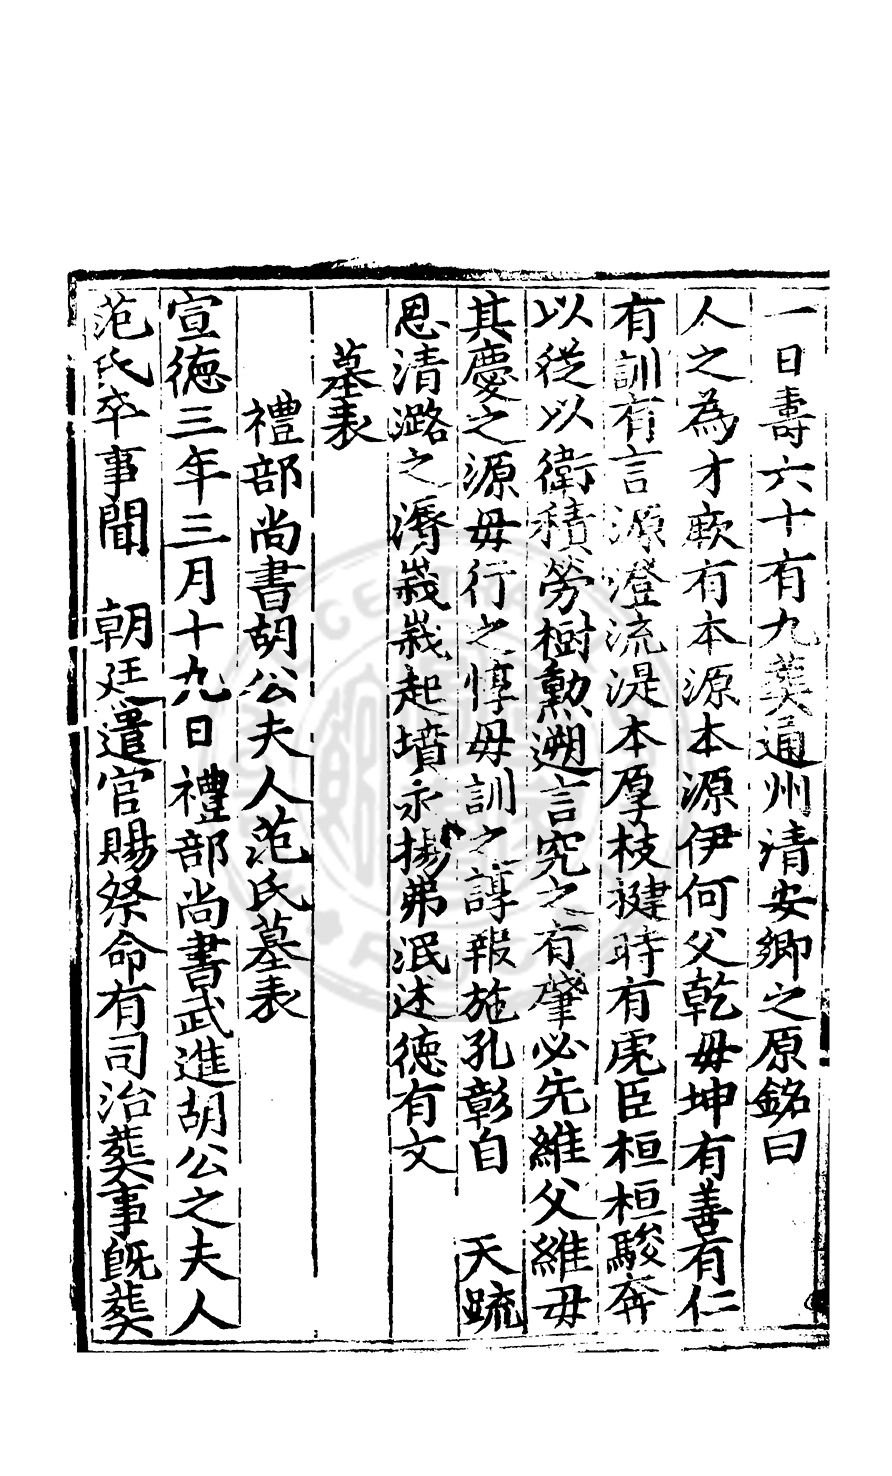 一日壽六十有九葬通州清安鄉之原銘曰
人之為才厥有本源本源伊何父乾毋坤有善有仁
有訓有言源澄流湜本厚枝揵時有虎臣桓桓駿奔
以從以衛積勞樹勳遡言究之有肇必先維父維毋
其慶之源毋行之惇毋訓之諄報施孔彰自　天疏
恩清潞之濱峩峩起墳永揚弗泯述德有文
墓表
禮部尚書胡公夫人范氏墓表
宣德三年三月十九日禮部尚書武進胡公之夫人
范氏卒事聞　朝廷遣官賜祭命有司治葬事旣葬